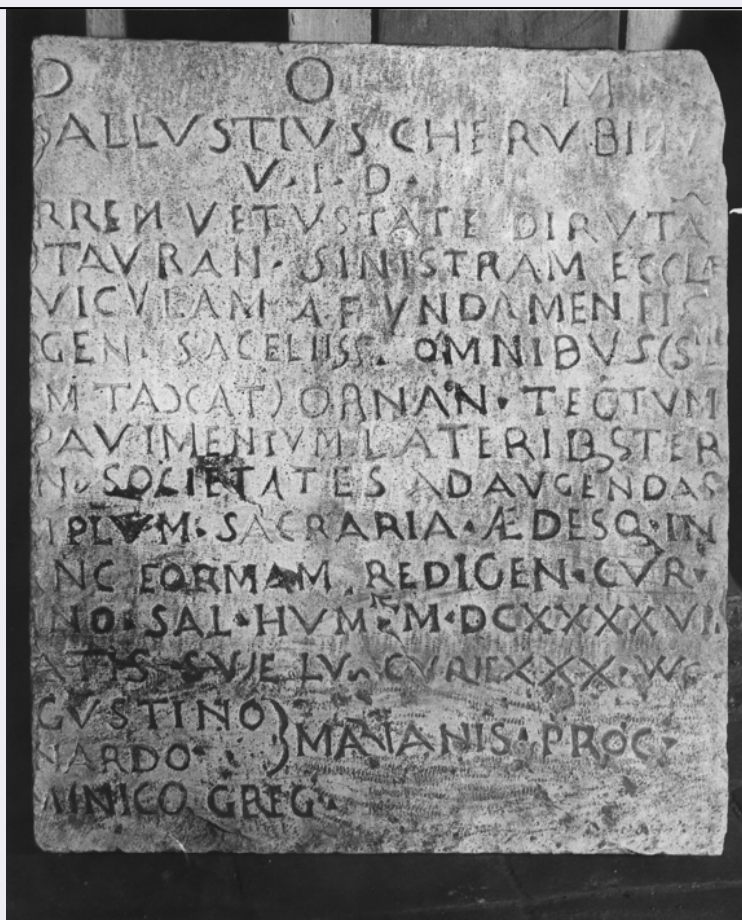 D O M
SALLVSTIVS CHERVBINV
V · I · D ·
RREM VETVSTATE DIRVTÃ
STAVRAN · SINISTRAM ECCLÆ
VICVLAM A FVNDAMENTIS
GEN · SACELIISS · OMNIBVS (S
M TAↃCAT) ORNAN · TECTVM
PAVIMENTVM LATERIB STER
N · SOCIETATES ADAVGENDAS
MPLVM · SACRARIA · ÆDESQ · IN
NC FORMAM · REDIGEN · CVR ·
NNO · SAL · HVM · M · DCXXXXVII
ATIS SVÆ LV CVRÆ XXX
GVSTINO
NARDO · } MARIANIS · PROC ·
MINICO GREG ·